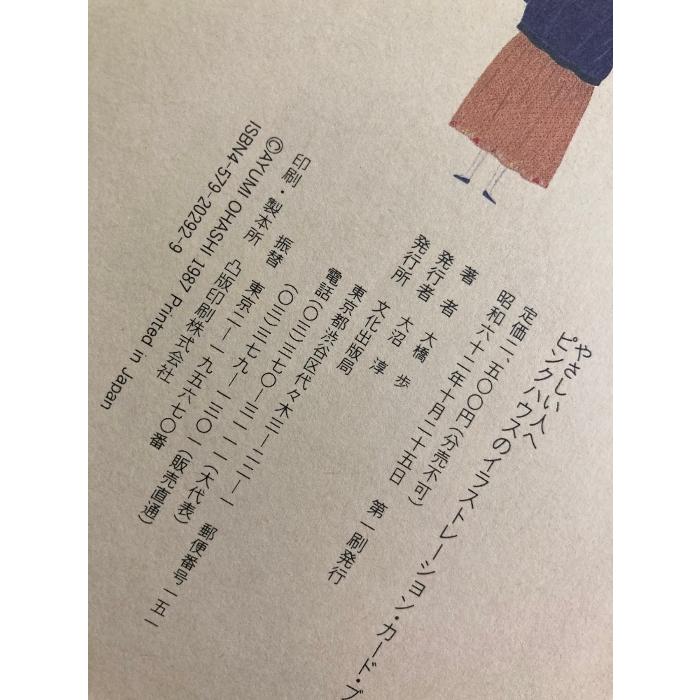 やさしい人へ
ピンクハウスのイラストレーション・カード・ブ
定価二、五〇〇円(分売不可)
昭和六十二年十月二十五日 第一刷発行
著者 大橋歩
発行者 大沼淳
発行所 文化出版局
東京都渋谷区代々木三ー二二ー一 郵便番号一五一
電話(〇三)三七〇ー三一一一(大代表)
(〇三)三七九ー一三〇一(販売直通)
振替 東京二ー一九五六七〇番
印刷・製本所 凸版印刷株式会社
©AYUMI OHASHI 1987 Printed in Japan
ISBN4-579-20292-9